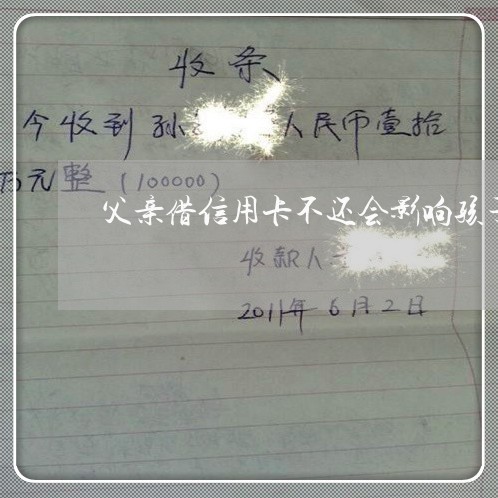 收条
今收到孙 人民币壹拾
万元整（100000）
父亲借信用卡不还会影响孩
收款人
2011年6月2日